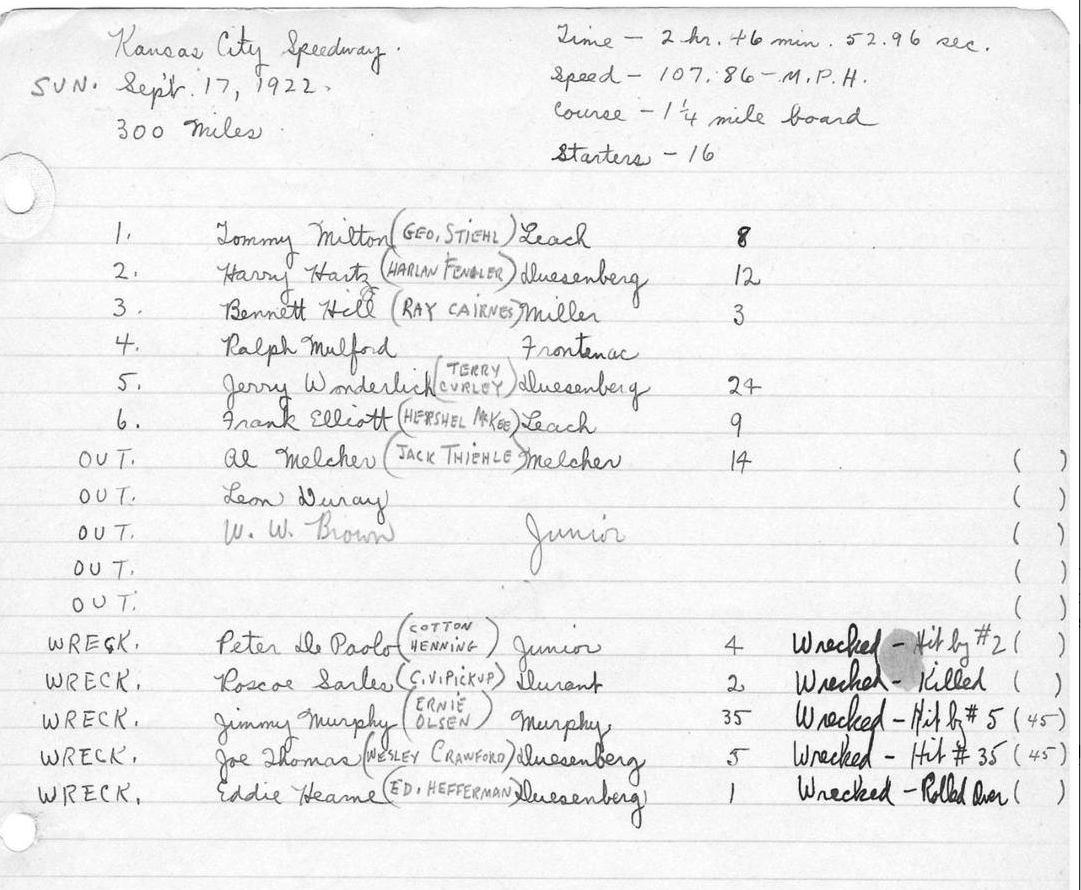 Kansas City Speedway.
SUN. Sept. 17, 1922.
300 Miles
Time - 2 hr. 46 min. 52.96 sec.
Speed - 107.86 - M.P.H.
Course - 1 1/4 mile board
Starters - 16
1. Tommy Milton (GEO. STIEHL) Leach 8
2. Harry Hartz (HARLAN FENGLER) Duesenberg 12
3. Bennett Hill (RAY CAIRNES) Miller 3
4. Ralph Mulford Frontenac
5. Jerry Wonderlich (TERRY CURLEY) Duesenberg 24
6. Frank Elliott (HERSHEL McKEE) Leach 9
OUT. Al Melcher (JACK THIEHLE) Melcher 14 ( )
OUT. Leon Duray ( )
OUT. W. W. Brown Junior ( )
OUT. ( )
OUT. ( )
WRECK. Peter De Paolo (COTTON HENNING) Junior 4 Wrecked - Hit by #2 ( )
WRECK. Roscoe Sarles (C.V. PICKUP) Durant 2 Wrecked - Killed ( )
WRECK. Jimmy Murphy (ERNIE OLSEN) Murphy 35 Wrecked - Hit by #5 (45)
WRECK. Joe Thomas (WESLEY CRAWFORD) Duesenberg 5 Wrecked - Hit #35 (45)
WRECK. Eddie Hearne (ED. HEFFERMAN) Duesenberg 1 Wrecked - Rolled Over ( )